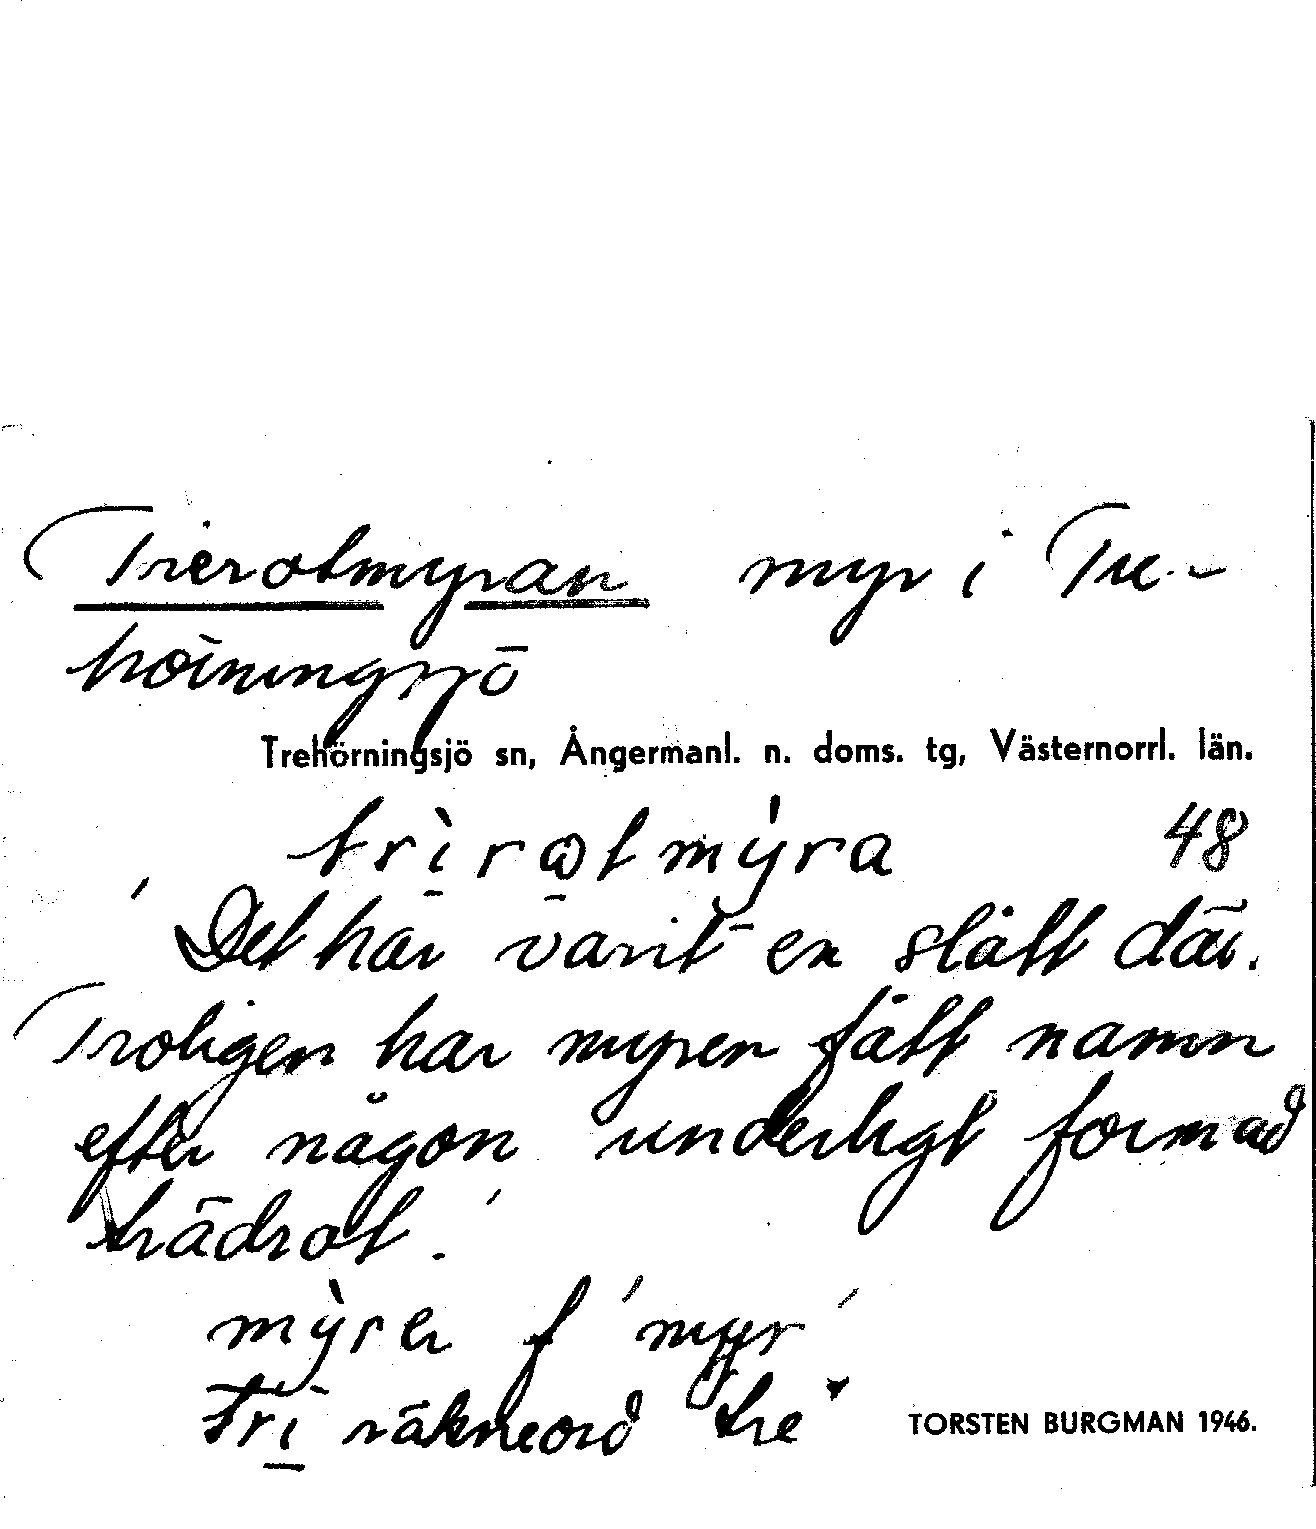 Trerotmyran myr i Tre-
hörningsjö
Trehörningsjö sn, Ångermanl. n. doms. tg, Västernorrl. län.
trìrωtmỳra 48
'Det har varit en slått där.
Troligen har myren fått namn
efter någon underligt formad
trädrot.'
mỳrer f 'myr'
tri räkneord "tre"
TORSTEN BURGMAN 1946.